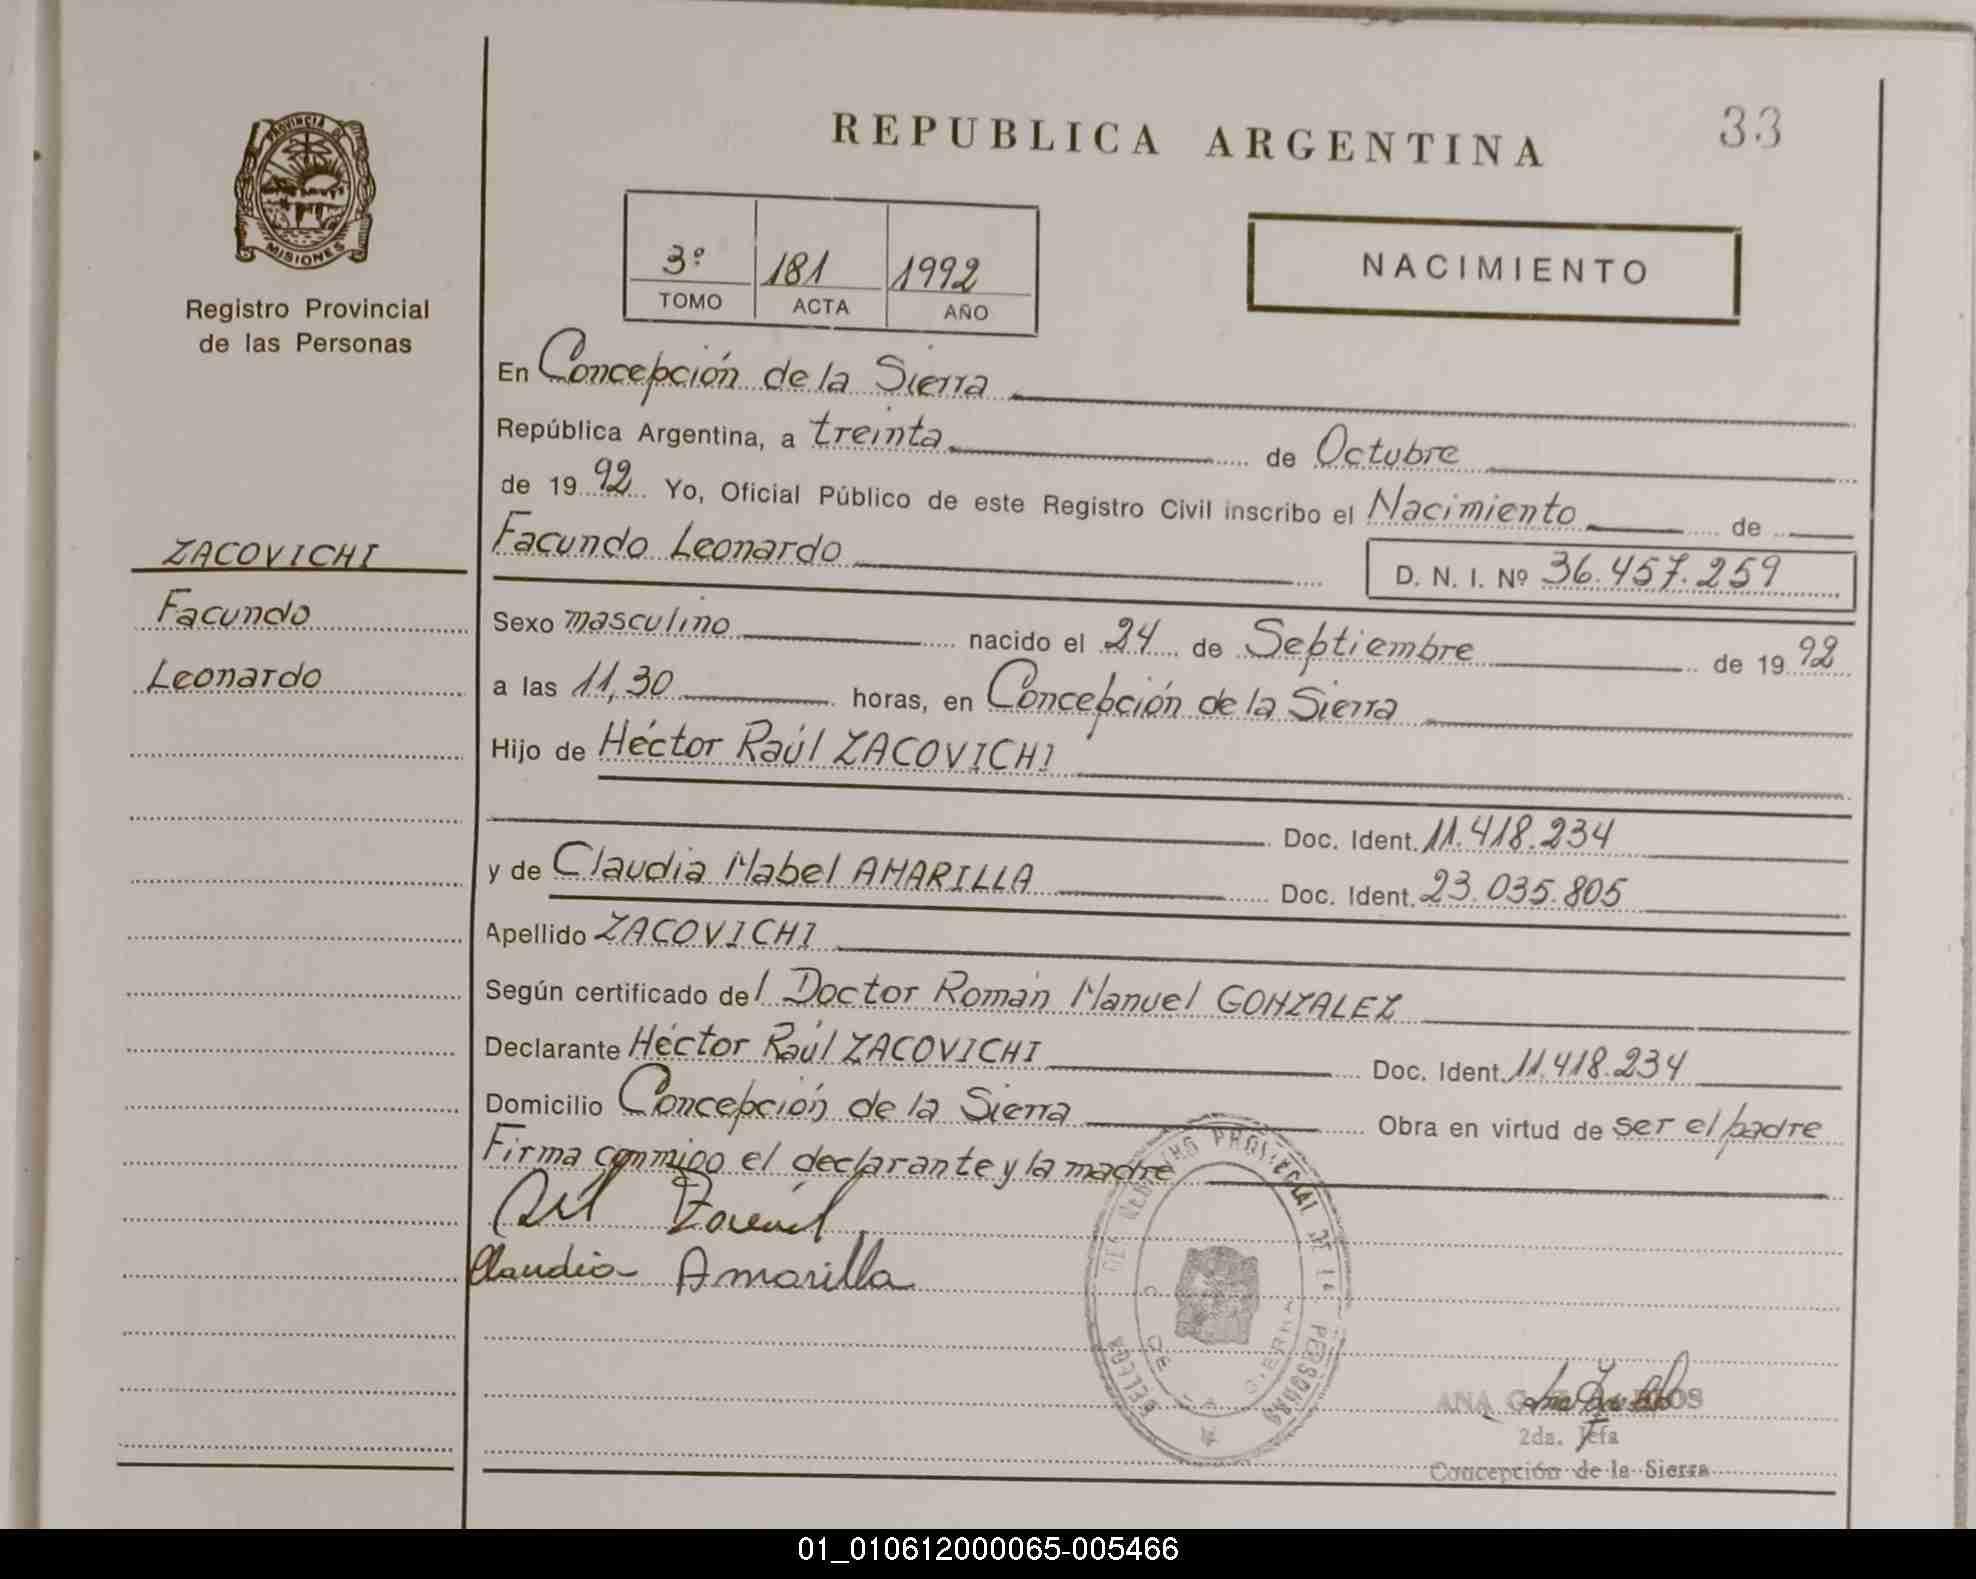 REPUBLICA ARGENTINA
33
PROVINCIA DE
MISIONES
Registro Provincial
de las Personas
3º 181 1992
TOMO ACTA AÑO
NACIMIENTO
ZACOVICHI
Facundo
Leonardo
En Concepción de la Sierra
República Argentina, a treinta de Octubre
de 1992 Yo, Oficial Público de este Registro Civil inscribo el Nacimiento de
Facundo Leonardo D. N. I. Nº 36.457.259
Sexo masculino nacido el 24 de Septiembre de 1992
a las 11,30 horas, en Concepción de la Sierra
Hijo de Héctor Raúl ZACOVICHI
Doc. Ident. 11.418.234
y de Claudia Mabel AMARILLA Doc. Ident. 23.035.805
Apellido ZACOVICHI
Según certificado del Doctor Román Manuel GONZALEZ
Declarante Héctor Raúl ZACOVICHI Doc. Ident. 11.418.234
Domicilio Concepción de la Sierra Obra en virtud de ser el padre
Firma conmigo el declarante y la madre
Claudia Amarilla
ANA
2da. Jefa
Concepción de la Sierra
01_010612000065-005466